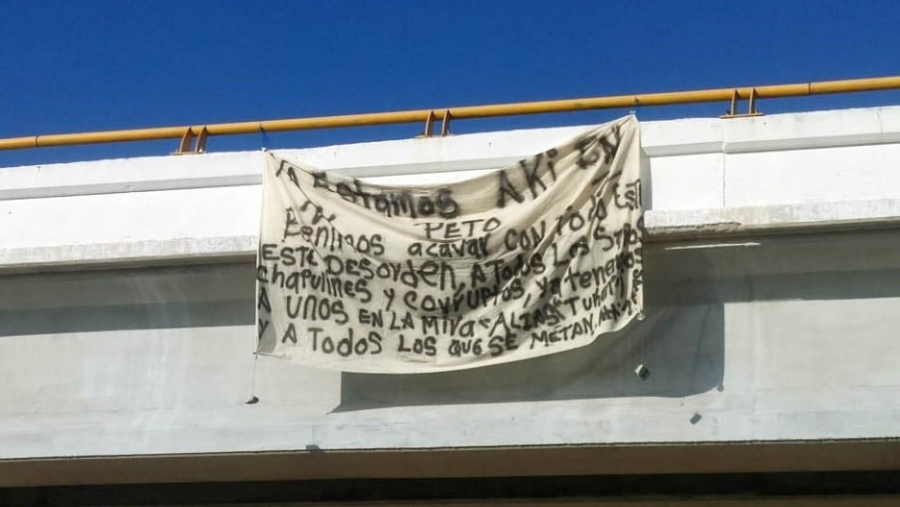 YA EstAmos AKi EN
PETO
Benimos acavar CON TODO Este
ESTE DESorden, A Todos Los
chapulines y corruptos, ya Tenemos
A UNOS EN LA Mira ALIAS
y A Todos LOS QUE SE METAN.